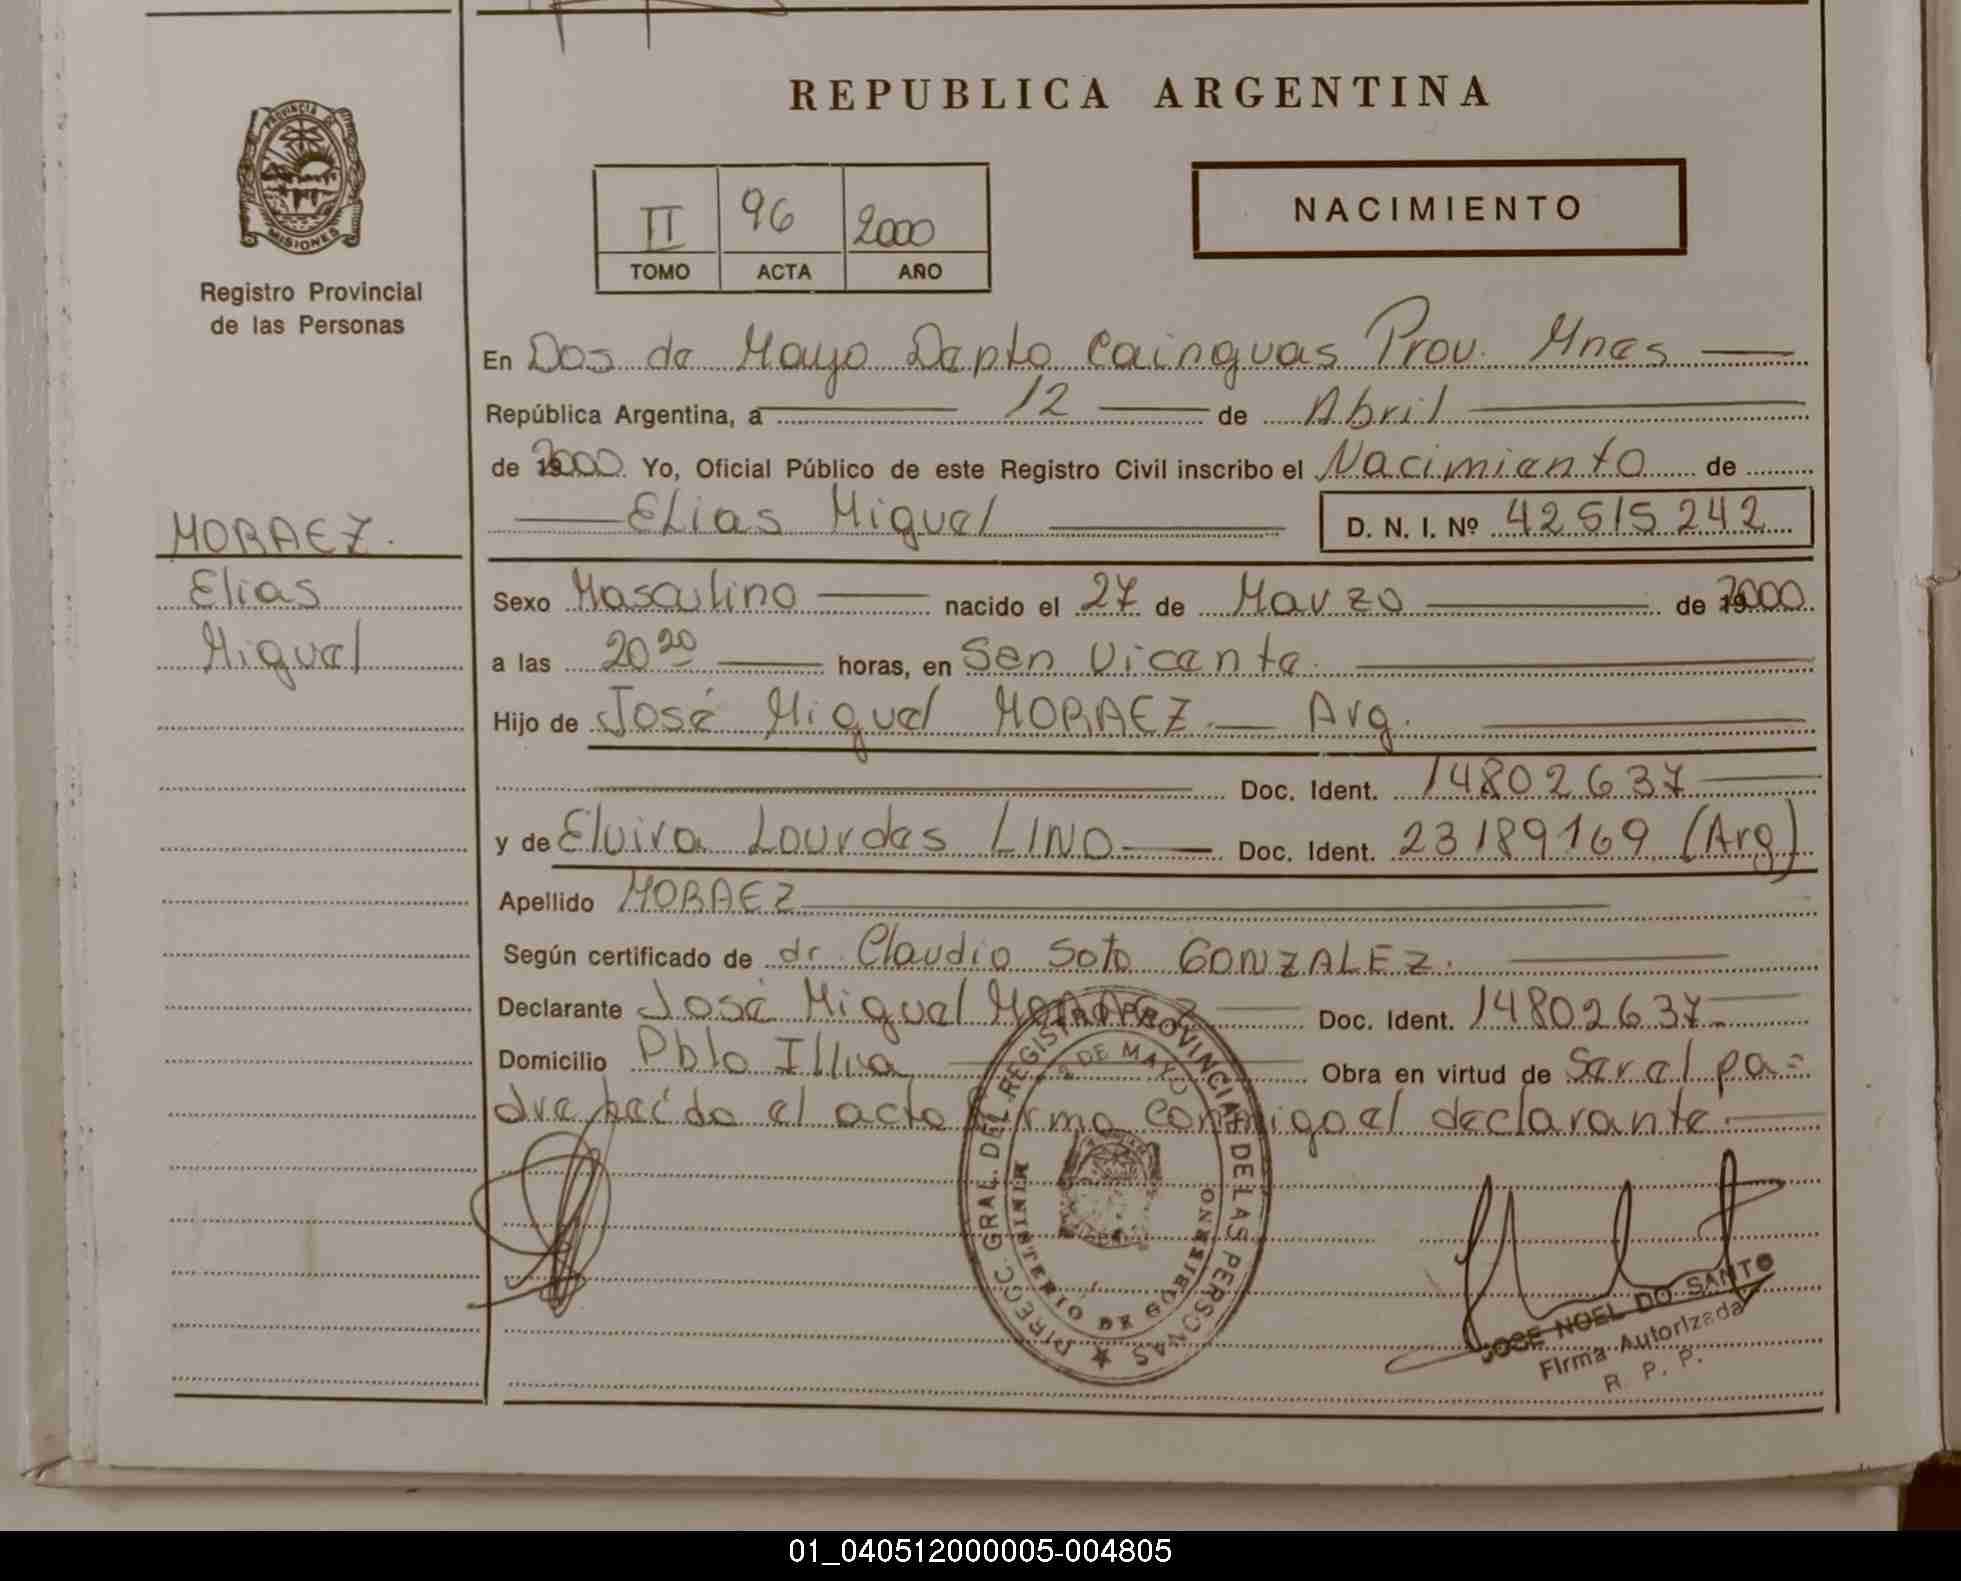 REPUBLICA ARGENTINA
PROVINCIA DE
MISIONES
Registro Provincial
de las Personas
II 96 2000
TOMO ACTA AÑO
NACIMIENTO
En Dos de Mayo Depto Cainguas Prov. Mnes
República Argentina, a 12 de Abril
de 2000 Yo, Oficial Público de este Registro Civil inscribo el Nacimiento de
Elias Miguel D. N. I. Nº 42515242
MORAEZ.
Elias
Miguel
Sexo Masculino nacido el 27 de Marzo de 2000
a las 20 20 horas, en Sen Vicente.
Hijo de José Miguel MORAEZ. Arg.
Doc. Ident. 14802637
y de Elvira Lourdes LINO Doc. Ident. 23189169 (Arg)
Apellido MORAEZ
Según certificado de dr. Claudio Soto GONZALEZ.
Declarante José Miguel MORAEZ Doc. Ident. 14802637
Domicilio Pblo Illia Obra en virtud de Ser el pa=
dre leído el acto firma conmigo el declarante.
DIRECC. GRAL. DEL REGISTRO PROVINCIAL DE LAS PERSONAS
2 DE MAYO
MINISTERIO DE GOBIERNO
JOSE NOEL DO SANTO
Firma Autorizada
R. P. P.
01_040512000005-004805